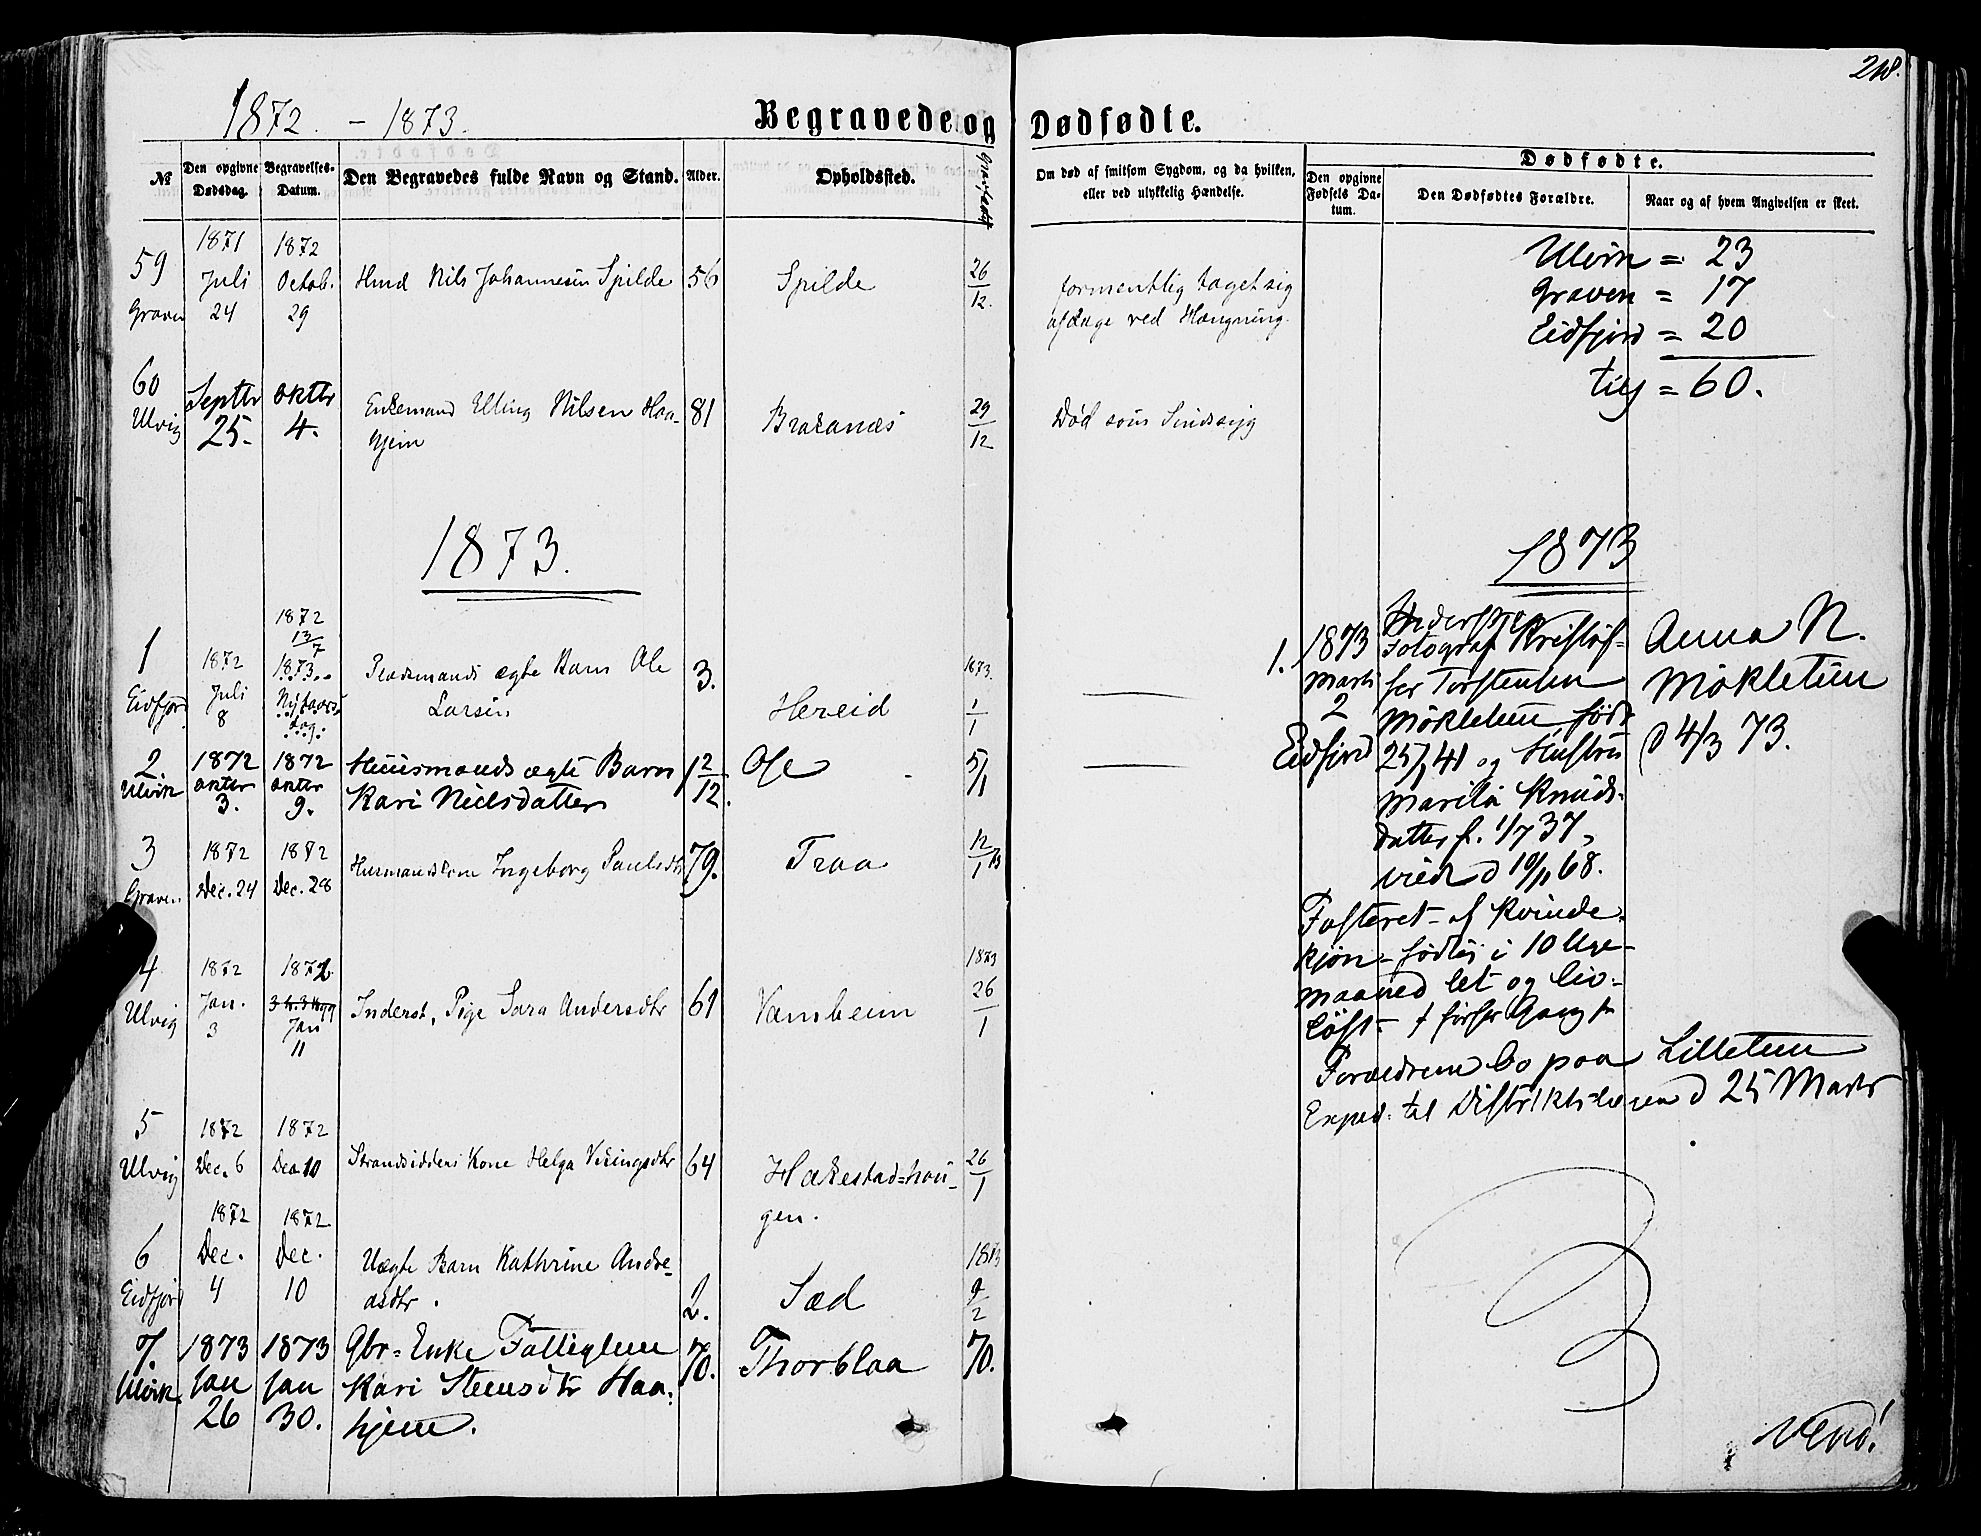 218.
1872. – 1873.
Begravede og Dødfødte.
№
Den opgivne Dødsdag.
Begravelses-Datum.
Den Begravedes fulde Navn og Stand.
Alder.
Opholdssted.
Om død af smitsom Sygdom, og da hvilken, eller ved ulykkelig Hændelse.
Dødfødte.
Den opgivne Fødsels Datum.
Den Dødfødtes Forældre.
Naar og af hvem Angivelsen er skeet.
59 Graven
1871 Juli 24
1872 Octob. 29
Nils Johannesen Spilde
56
Spilde
26/12.
formentlig taget sig
afdage ved Hængning.
Ulvik = 23
Graven = 17
Eidfjord = 20
= 60.
60 Ulvig
Septbr 25.
Oktbr 4.
Enkemand Elling Nilsen Haa-
hjem
81
Brakanæs
29/12
Død som Sindssyg
1873.
1873
1 Eidfjord
1872 Juli 8
1872 13/7 1873. Nytaarsdag.
Pladsmands ægte Barn Ole
Larsen
3.
Hereid
1873. 1/1
2. Ulvik
1872 Oktbr 3.
1872 Oktbr 9.
Huusmands ægte Barn
Kari Nielsdatter
1 2/12.
Ose
5/1
3 Graven
1872 Dec. 24
1872 Dec. 28
Ingeborg Paulsdtr
79.
Traa
12/1
4 Ulvig
1872 Jan. 3
1872 Jan 11
Inderst, Pige Sara Andersdtr
61
Vamheim
1873 26/1
5 Ulvig
1872 Dec. 6
1872 Dec 10
Strandsidders Kone Helga Vikingsdtr
64
Hakestad=hau-
gen.
26/1
6 Eidfjord
1872 Dec. 4
1872 Dec. 10
Uægte Barn Kathrine Andre-
asdtr.
2.
Sæd
1873 9/2
7. Ulvik.
1873 Jan 26
1873 Jan 30.
Gbr= Enke Fattiglem
Kari Steensdtr Haa-
hjem.
70.
Thorblaa
70.
1. 1873 Marts 2 Eidfjord
Fotograf Kristof-
fer Torstensen
Møkletun født
25/1 41 og Hustru
Marita Knuds-
datter f. 1/7 37,
viede d 10/11 68.
Anna N.
Møkletun
d 4/3 73.
Fosteret af Kvinde-
kjøn – født i 10 Uge-
maaned let og liv-
løst –
Forældrene bo paa Lilletun
Exped. til Distriktslægen d 25 Marts
Vend!